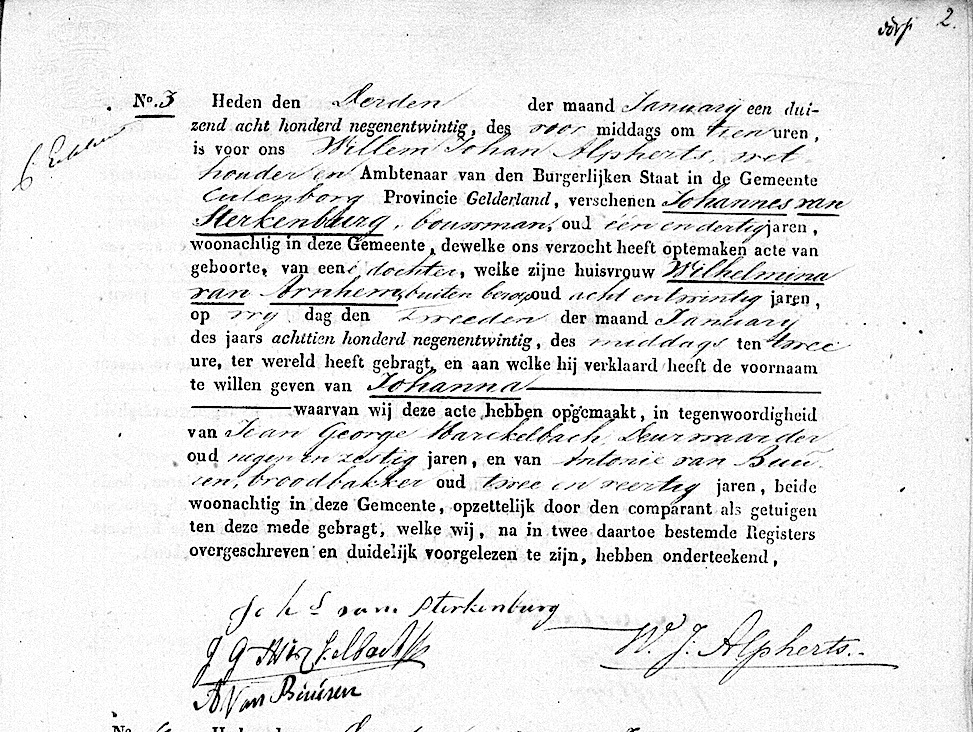 2.
No. 3 Heden den Derden der maand January een dui-
zend acht honderd negenentwintig, des voor middags om tien uren,
is voor ons Willem Johan Alpherts, wet
houder en Ambtenaar van den Burgerlijken Staat in de Gemeente
Culenborg Provincie Gelderland, verschenen Johannes van
Sterkenburg, bouwman, oud één en dertig jaren,
woonachtig in deze Gemeente, dewelke ons verzocht heeft optemaken acte van
geboorte, van eene dochter, welke zijne huisvrouw Wilhelmina
van Arnhem, buiten beroep oud acht en twintig jaren,
op vry dag den Tweeden der maand January
des jaars achttien honderd negenentwintig, des middags ten twee
ure, ter wereld heeft gebragt, en aan welke hij verklaard heeft de voornaam
te willen geven van Johanna
waarvan wij deze acte hebben opgemaakt, in tegenwoordigheid
van Jean George Marckelbach, Deurwaarder
oud negen en zestig jaren, en van Antonie van Buu
ren, broodbakker oud twee en veertig jaren, beide
woonachtig in deze Gemeente, opzettelijk door den comparant als getuigen
ten deze mede gebragt, welke wij, na in twee daartoe bestemde Registers
overgeschreven en duidelijk voorgelezen te zijn, hebben onderteekend,
Johs van Sterkenburg
W. J. Alpherts.
J G
A Van Buuren